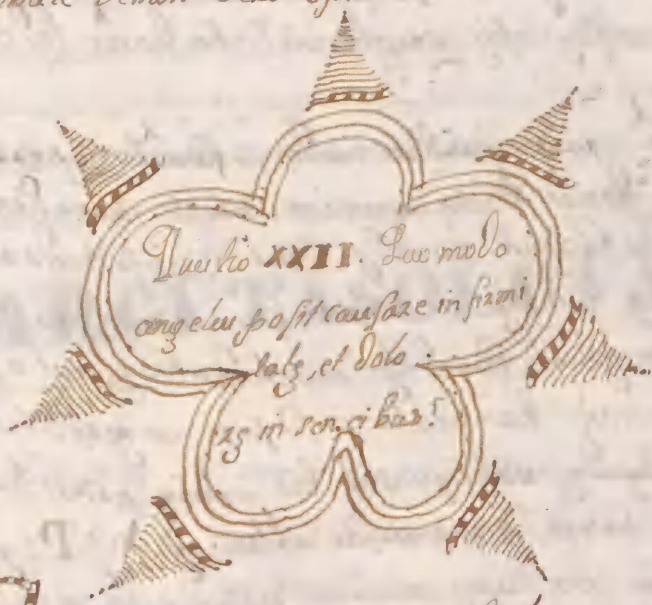 Questio XXII. Quo modo
angelus posit causare in firmi
tatz, et dolo
rz in sensibus?